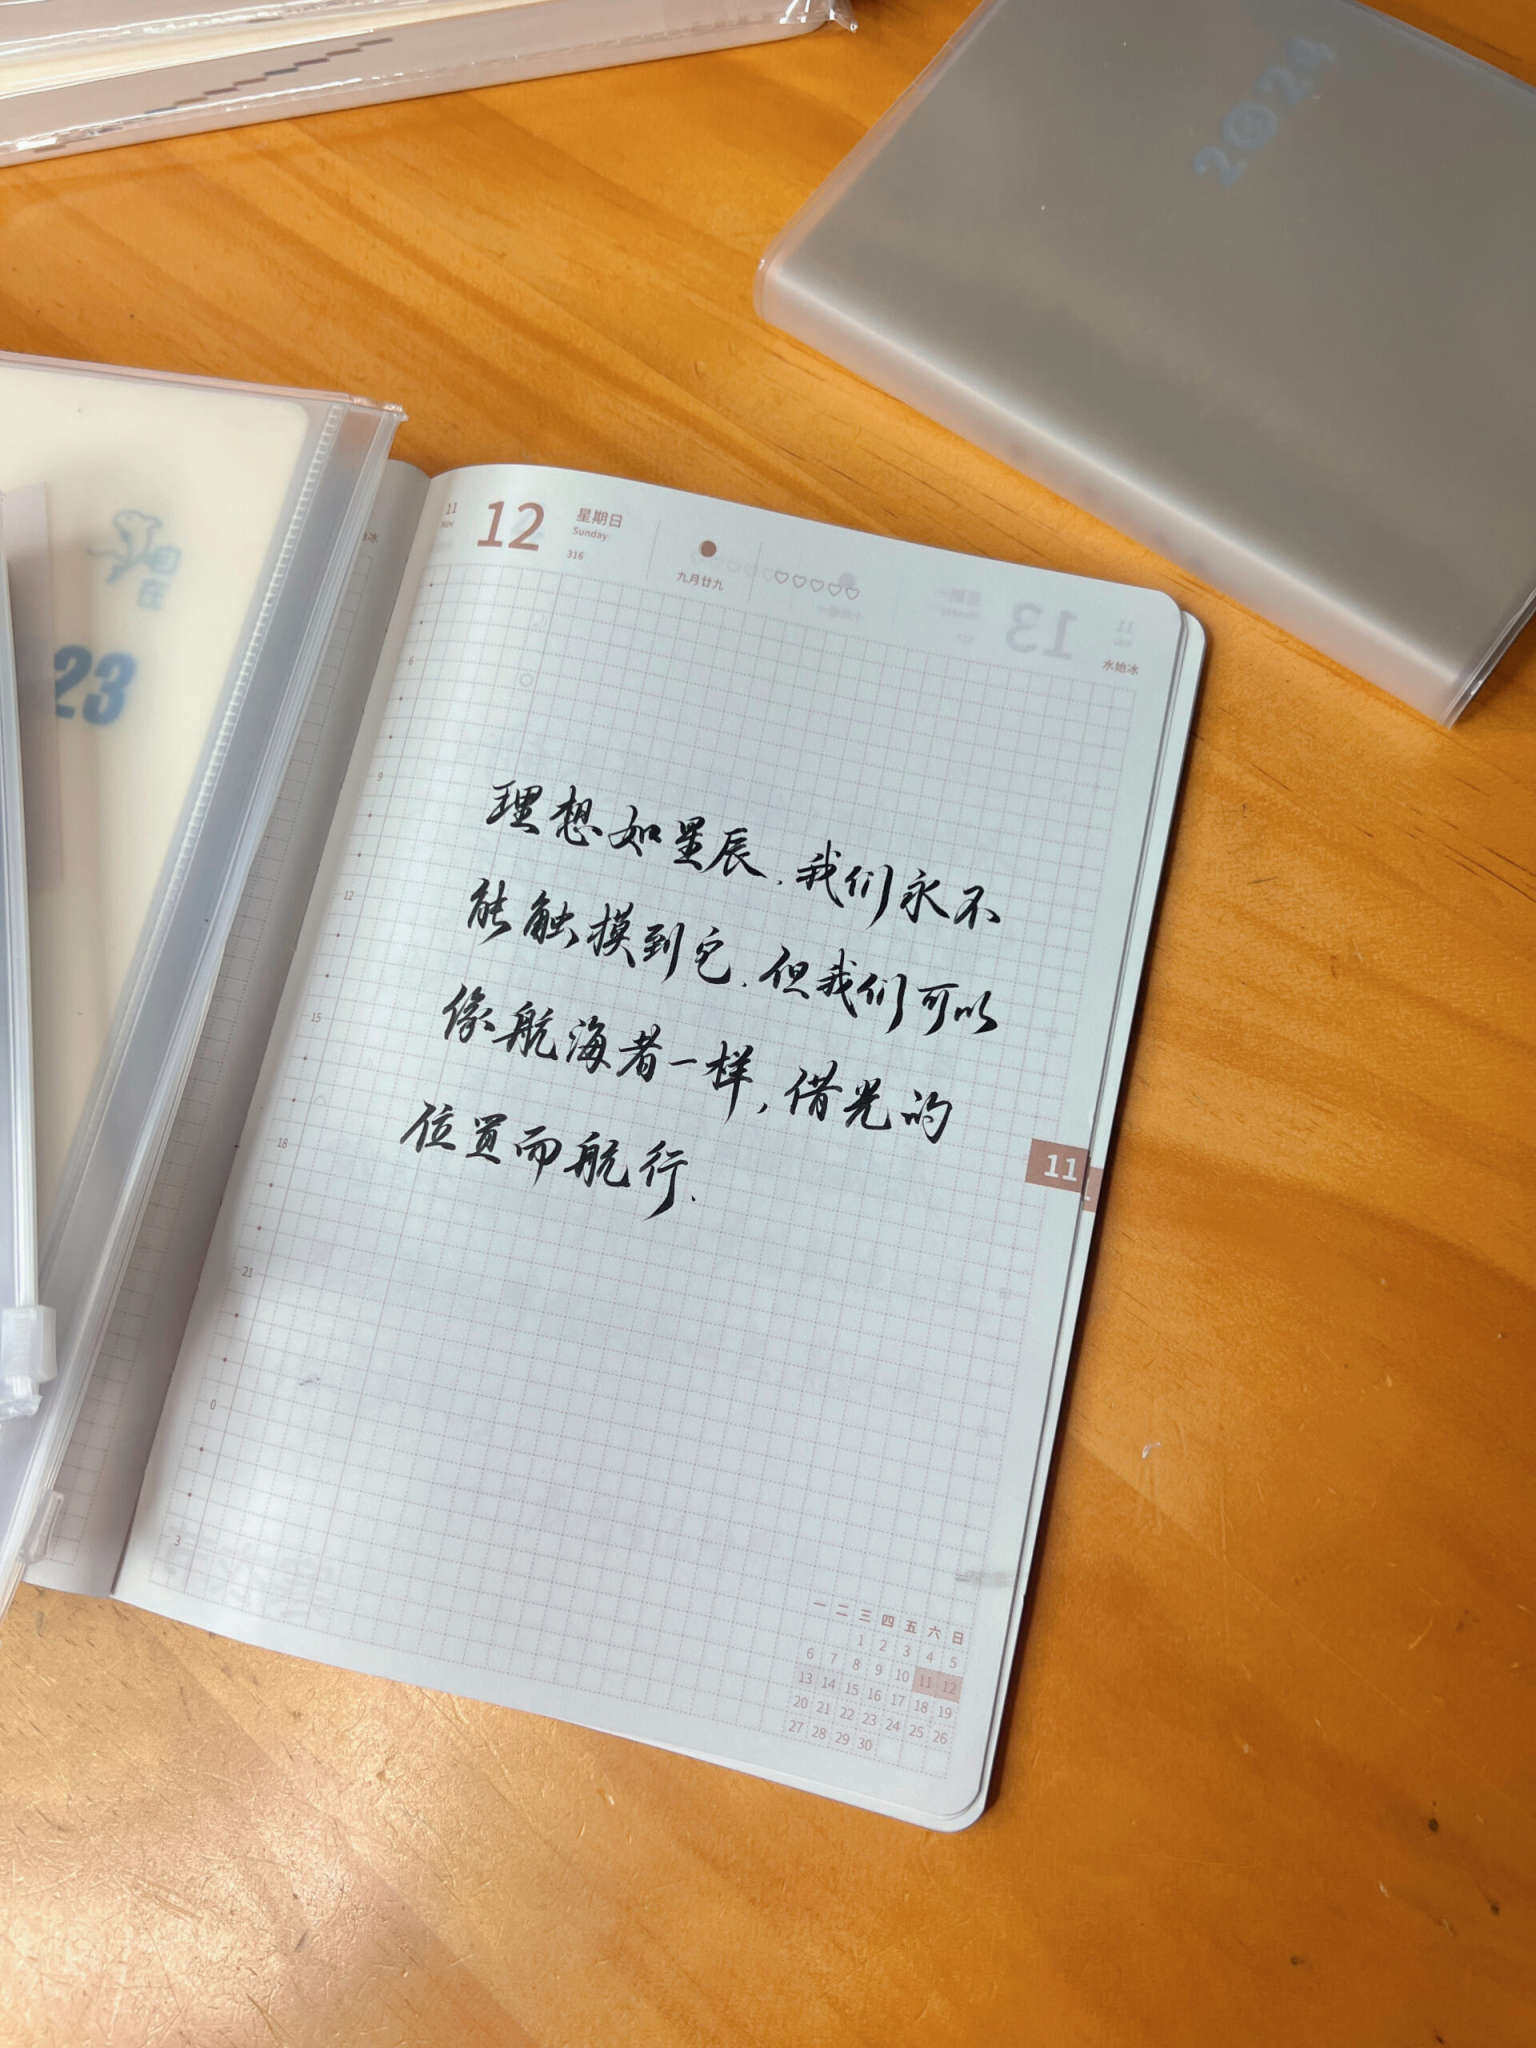 2024
23
11
12
星期日
Sunday
316
九月廿九
水始冰
6
9
12
15
18
21
0
3
理想如星辰.我们永不
能触摸到它.但我们可以
像航海者一样,借光的
位置而航行.
11
一 二 三 四 五 六 日
1 2 3 4 5
6 7 8 9 10 11 12
13 14 15 16 17 18 19
20 21 22 23 24 25 26
27 28 29 30